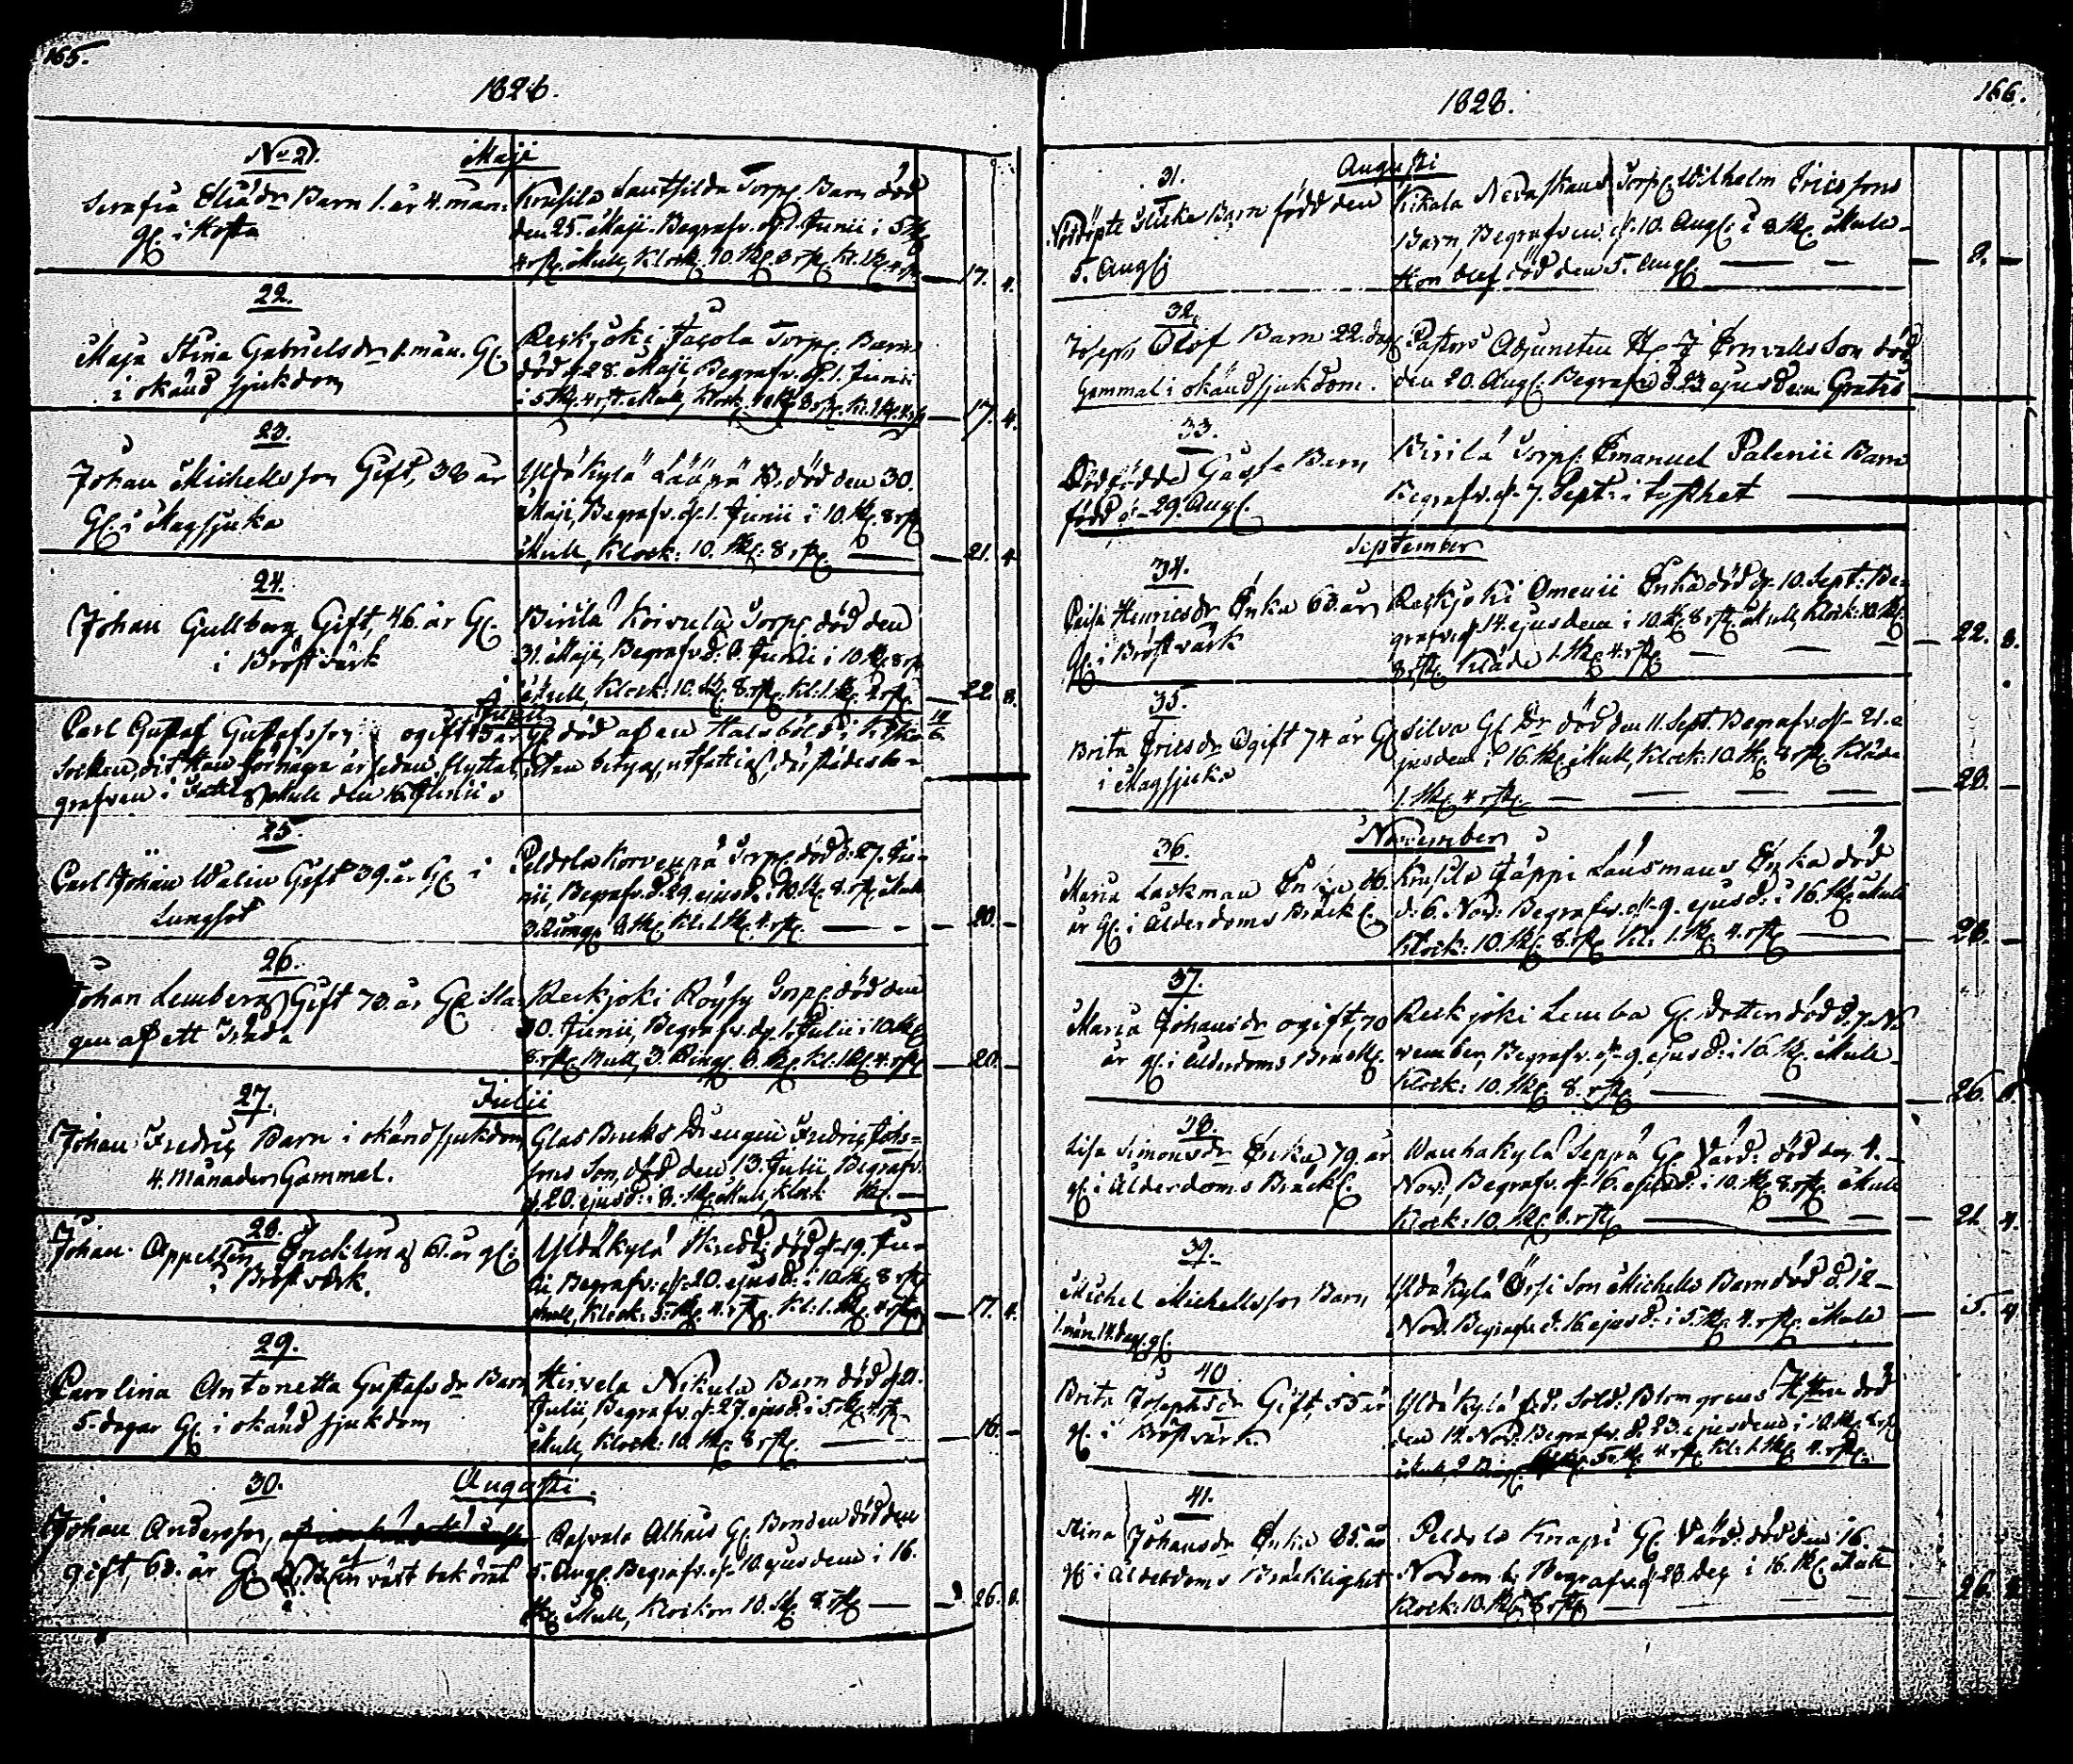 165.
1828.
No 21. Maji
Serafia Eliædr Barn 1. år 4. mån:
gl. i Hosta
Krusila Lautsilda Torp. Barn död
den 25. Maji. Begrafv. d. 1. Junii i 5 sk
4 rst. Mull, Klock. 10. sk. 8 rst. Kl. 1 sk. 4 rst. — 17. 4.
22.
Maja Stina Gabrielsdr 1. mån. Gl.
i okänd sjukdom
Reckjoki Torp. Barn
död d. 28. Maji, Begrafv. d. 1. Junii
i 5 sk. 4 rst. Mull, Klock. 10 sk. 8 rst. Kl. 1 sk. 4 rst. — 17. 4.
23.
Johan Michellsson Gift, 38 år
Gl. i Magsjuka
Yldäkylä Lääpä B. död den 30.
Maji, Begrafv. d. 1. Junii i 10. sk. 8 rst
Mull, Klock: 10. sk. 8 rst. — 21. 4
24.
Johan Gullberg Gift, 46. år Gl.
i Bröstvärk
Birilä Koivula Torp. död den
31. Maji, Begrafv. d. 8. Junii i 10 sk. 8 rst
Mull, Klock: 10. sk. 8. rst. Kl: 1. sk. 4 rst. — 22. 8.
Junii
Carl Gustaf Gustafsson ogift 45 år Gl. död af en Halsböld i
Socken, dit Han för några år sedan flyttat, utan betyg, der städes be-
grafven i Mull den 16. Junii.
25.
Carl Johan Walin Gift 39. år Gl. i
Lungsot
Peldola Korvenpä Torp. död d. 27. Ju-
nii, Begrafv. d. 29. ejusd. i 10. sk. 8. rst. Mull
3. Ringn. 8. sk. Kl: 1. sk. 4. rst. — 20. —
26.
Johan Lemberg Gift 70. år Gl. Sla-
gen af ett Träd.
Reckjoki Röysy Torp. död den
30. Junii, Begrafv. d. 1. Julii i 10 sk
8. rst. Mull, 3. Ring. 8. sk. Kl: 1. sk. 4. rst. — 20. —
27. Julii
Johan Fredric Barn i okänd sjukdom
4. Månader Gammal.
Glas Bruks Drengen Fredric Johs-
sons Son, död den 13. Julii, Begrafv.
d. 20. ejusd: i 8. sk. Mull, Klock sk. —
28.
Johan Appelgren Enkling 61. år gl.
i Bröstvärk.
Yldäkylä död d. 19. Ju-
lii, Begrafv: d. 20. ejusd: i 10 sk. 8 rst
Mull, Klock: 5. sk. 4. rst. Kl: 1. sk. 4 rst. — 17. 4.
29.
Carolina Antonetta Gustafsdr Barn
5. dagar Gl. i okänd sjukdom
Hirvela Nikula Barn död d. 21.
Julii, Begrafv. d. 27. ejusd. i 5. sk. 4. rst
Mull, Klock: 10. sk. 8 rst. — 16. —
30. Augusti.
Johan Andersson,
gift, 63. år Gl.
Rasvala Alhais Gl. Bonden död den
5. Aug. Begrafv. d. 10 ejusdem i 16.
sk. Mull, Klockn 10. sk. 8. rst. — 26. 8.
166.
1828.
31. Augusti
Nöddöpte Flicka Barn född den
5. Aug.
Kikala Nevaskans Torp. Wilhelm Ericssons
Barn, Begrafven d. 10. Aug. i 8. sk. Mull
Hon blef död den 5. Aug. — 8. —
32.
Joseph Olof Barn 22. dag.
Gammal i okänd sjukdom.
Pastors Adjuncten Son död
den 20. Aug. Begrafv d. 23 ejusdem. Gratis
33.
Dödfödde Gosse Barn
född d. 29. Aug.
Birilä Torp. Emanuel Palenii Barn
Begrafv. d. 7. Sept. i tysthet —
September
34.
Caisa Henricsdr Enka 63. år
gl. i Bröstvärk
Reckjoki Omenii Enka död d. 10. Sept: Be-
grafv. d. 14. ejusdem i 10. sk. 8 rst. Mull, Klock: 10. sk.
8. rst. Kläde 1. sk. 4. rst. — 22. 8.
35.
Brita Ericsdr Ogift 74 år Gl
i Magsjuka
Silva Gl. Dr död den 11. Sept. Begrafv. d. 21. e-
jusdem i 16. sk. Mull, Klock: 10. sk. 8 rst. Kläde
1. sk. 4 rst. — 28. —
November
36.
Maria Lackman Enka 86.
år Gl. i Ålderdoms Bräckl.
Krusila Jäppi Länsmans Enka död
d: 6. Nov: Begrafv. d. 9. ejusd: i 16. sk. Mull
Klock: 10. sk. 8. rst. Kl: 1. sk. 4. rst. — 28. —
37.
Maria Johansdr ogift, 70
år gl. i Ålderdoms Bräckl.
Reckjoki Lemba Gl. dotter död d. 7. No
vember, Begrafv. d. 9. ejusd: i 16. sk. Mull
Klock: 10. sk. 8. rst. — 26. 8.
38.
Lisa Simonsdr Enka 79. år
gl. i Ålderdoms Bräckl.
Wanhakylä Seppä Gl. Värd: död den 4.
Nov:, Begrafv. d. 16. ejusd: i 10. sk. 8. rst. Mull
Klock: 10. sk. 8. rst. — 21. 4.
39.
Michel Michellsson Barn
1. mån. 14. dag. gl.
Yldäkylä Örsi Son Michells Barn död d. 12
Nov: Begrafv. d. 16. ejusd: i 5. sk. 4. rst. Mull — 5. 4
40
Brita Josephsdr Gift, 55 år
gl. i Bröstvärk
Yldäkylä f.d. Sold: Blomgrens Hustru död
den 14. Nov: Begrafv. d. 23. ejusdem i 10. sk. 8. rst
Mull, 5. sk. 4 rst. Kl: 1. sk. 4. rst.
41.
Stina Johansdr Enka 85. år
gl. i Ålderdoms Bräcklighet
Peldola Knapi Gl. Värd: död den 16.
Novemb. Begrafv. d. 28. Dec i 16. sk. Mull
Klock: 10. sk. 8 rst. — 26. 8.